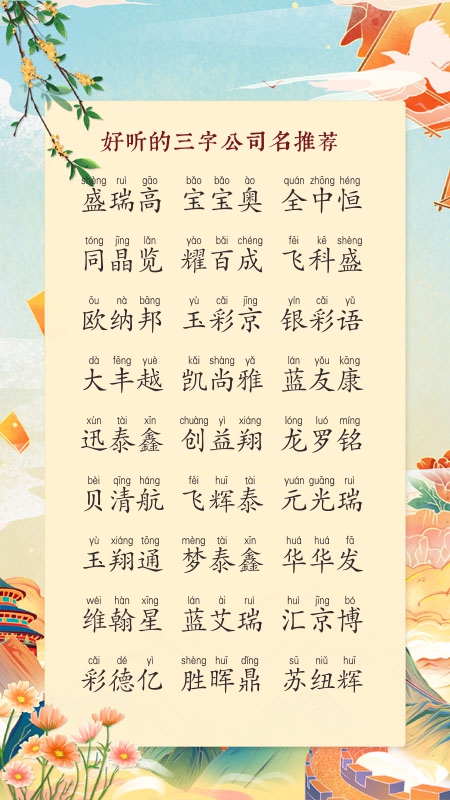 好听的三字公司名推荐
shèng ruì gāo bǎo bǎo ào quán zhōng héng
盛瑞高 宝宝奥 全中恒
tóng jīng lǎn yào bǎi chéng fēi kē shèng
同晶览 耀百成 飞科盛
ōu nà bāng yù cǎi jīng yín cǎi yǔ
欧纳邦 玉彩京 银彩语
dà fēng yuè kǎi shàng yǎ lán yǒu kāng
大丰越 凯尚雅 蓝友康
xùn tài xīn chuàng yì xiáng lóng luó míng
迅泰鑫 创益翔 龙罗铭
bèi qīng háng fēi huī tài yuán guāng ruì
贝清航 飞辉泰 元光瑞
yù xiáng tōng mèng tài xīn huá huá fā
玉翔通 梦泰鑫 华华发
wéi hàn xīng lán ài ruì huì jīng bó
维翰星 蓝艾瑞 汇京博
cǎi dé yì shèng huī dǐng sū niǔ huī
彩德亿 胜晖鼎 苏纽辉